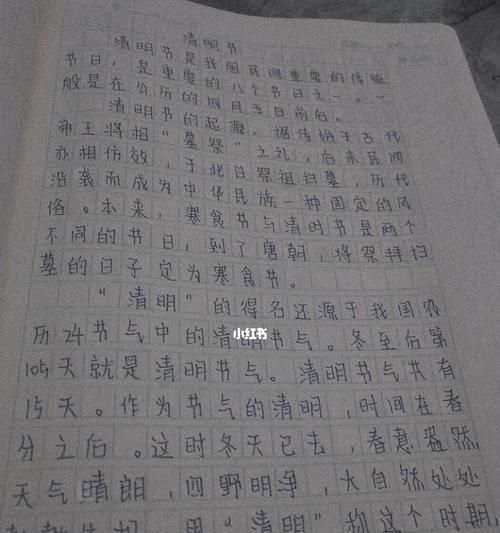 清明节
清明节是我国民间重要的传统
节日，是重要的八个节日之一。一
般是在公历的四月五日前后。
清明节的起源，据传始于古代
帝王将相“墓祭”之礼，后来民间
亦相仿效，于此日祭祖扫墓，历代
沿袭而成为中华民族一种固定的风
俗。本来，寒食节与清时节是两个
不同的节日，到了唐朝，将祭拜扫
墓的日子定为寒食节。
“清明”的得名还源于我国农
历24节气中的清明节气。冬至后第
105天就是清明节气。清明节气共有
15天。作为节气的清明，时间在春
分之后。这时冬天已去，春意盎然，
天气晴朗，四野明净，大自然处处
用“清明”称这个时期，
小红书